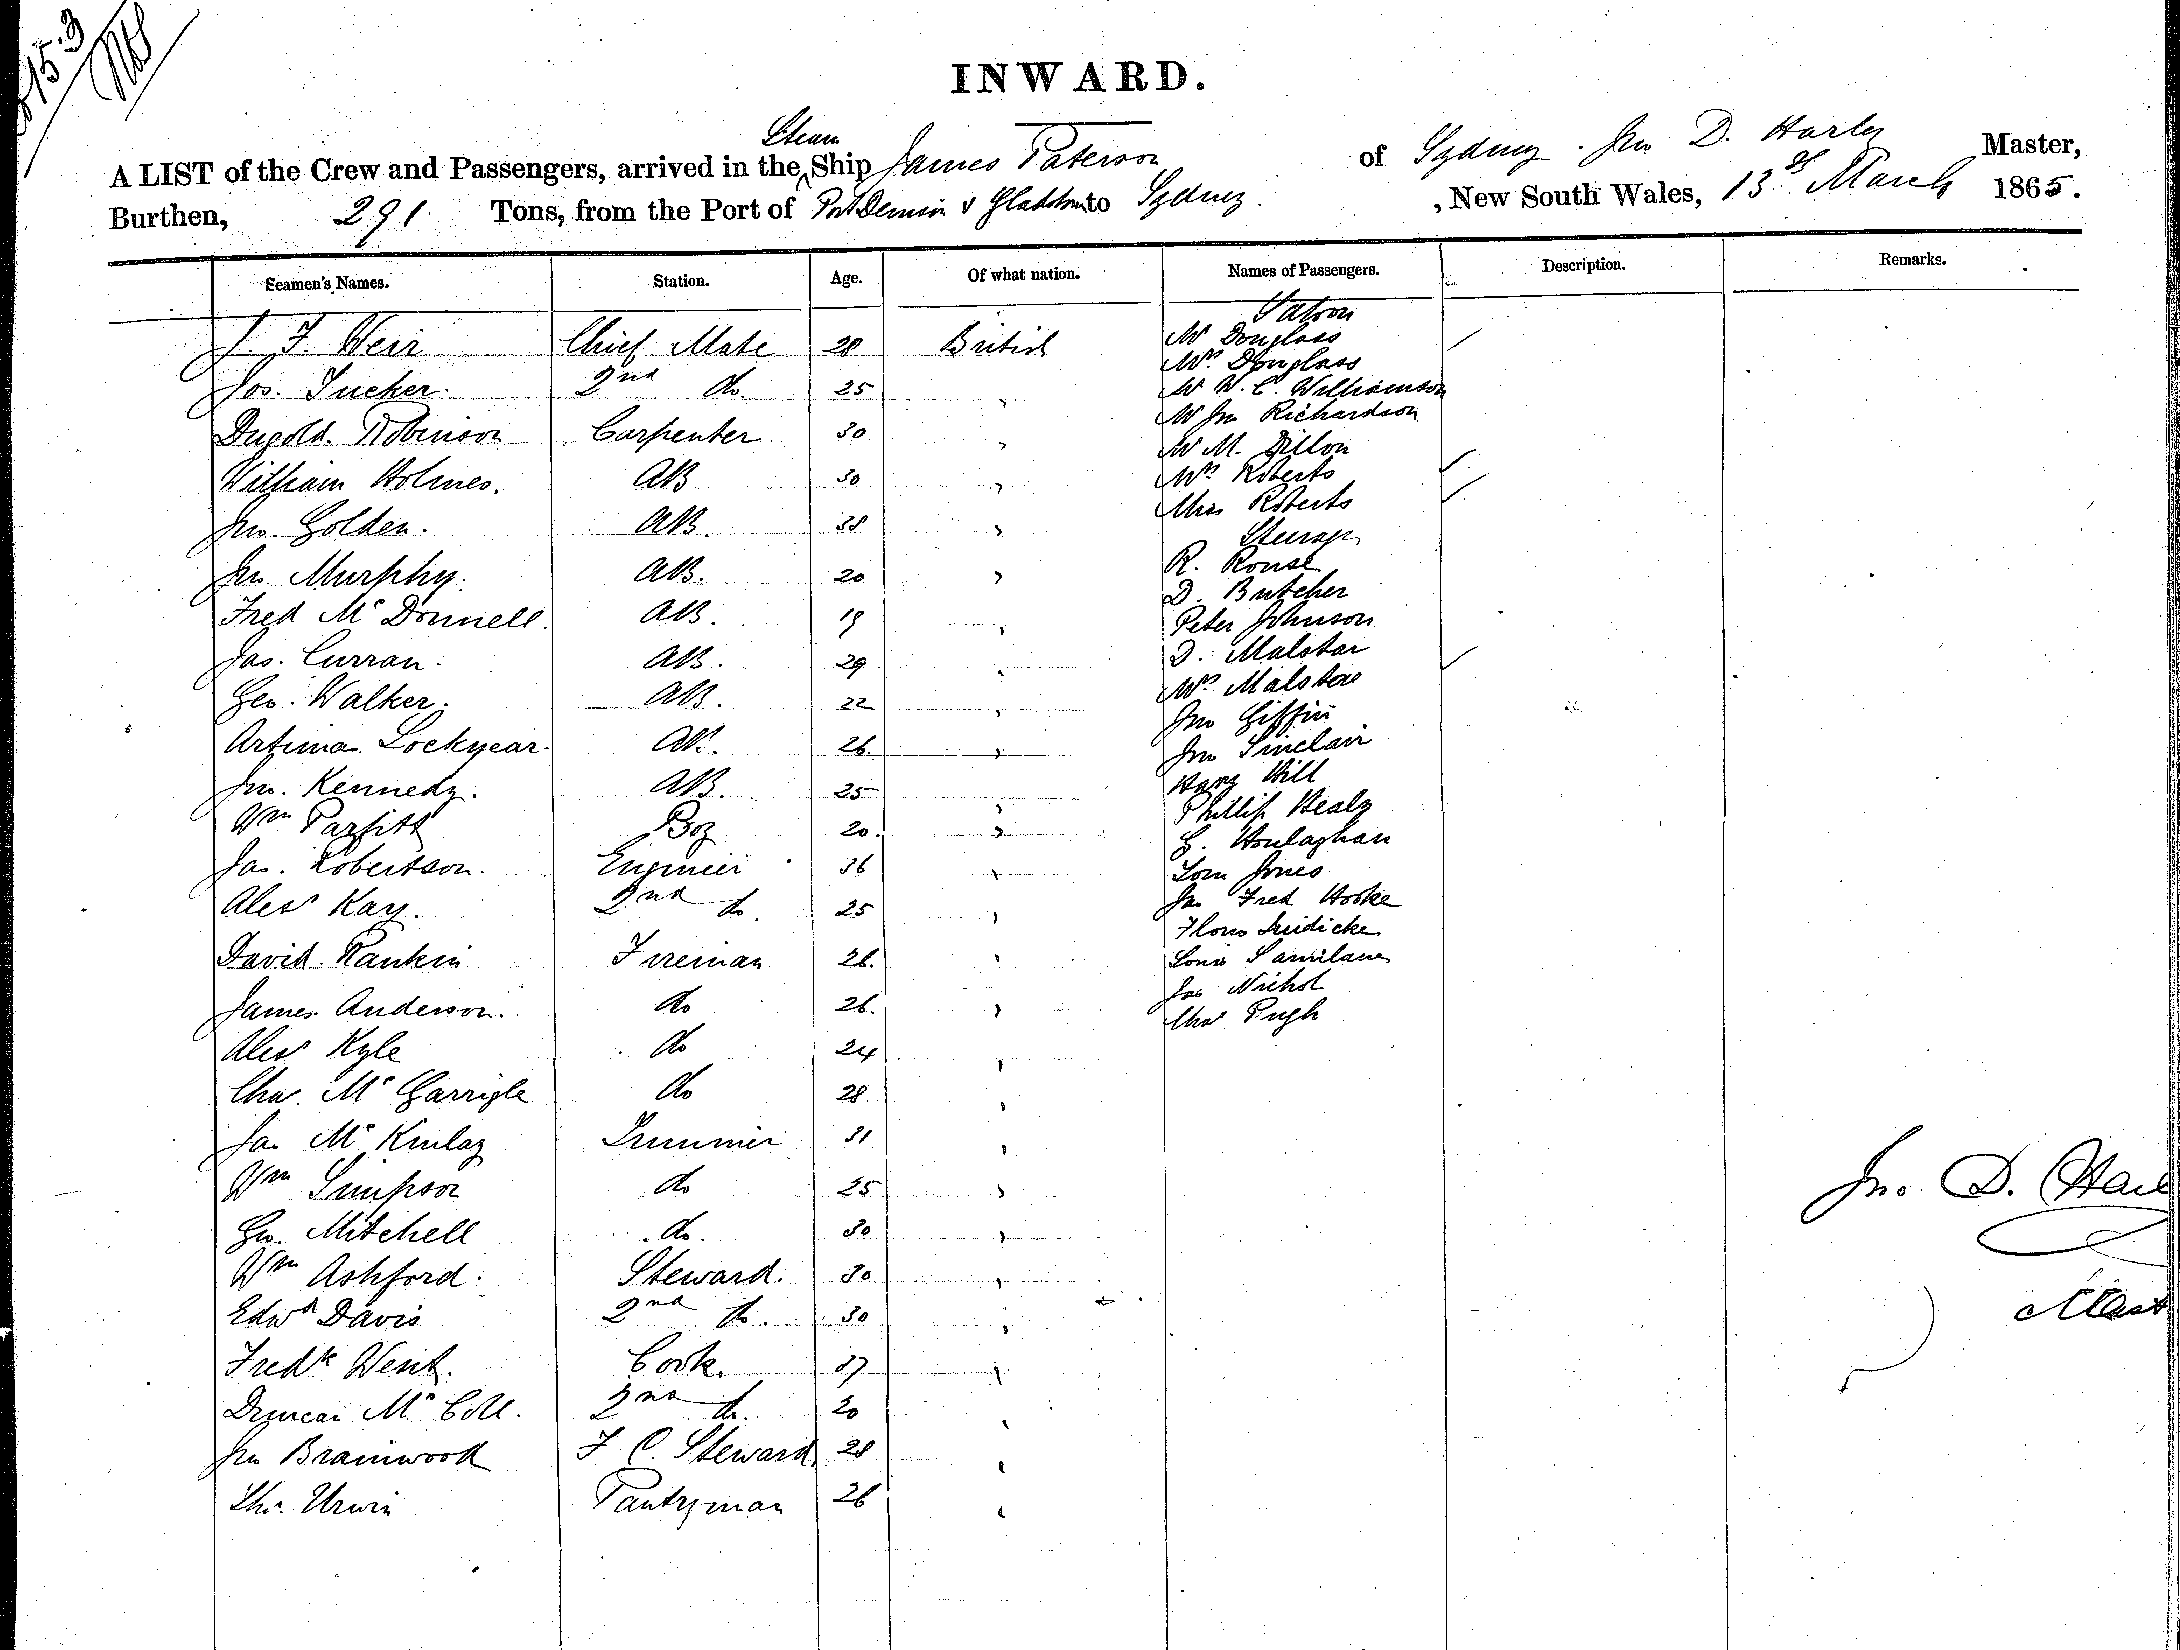 INWARD.
A LIST of the Crew and Passengers, arrived in the Steam Ship James Paterson of Sydney. Jno D. Harley Master,
Burthen, 291 Tons, from the Port of Port Denison & Gladstone to Sydney, New South Wales, 13th March 1865.
Seamen's Names. Station. Age. Of what nation. Names of Passengers. Description. Remarks.
J. F. Weir Chief Mate 28 British
Jos. Tucker 2nd do 25 "
Dugold Robinson Carpenter 30 "
William Holmes. AB 30 "
Jno. Golden. AB. 38 "
Jno Murphy. AB. 20 "
Fred McDonnell. AB. 19 "
Jas. Curran. AB. 29 "
Geo. Walker. AB. 22 "
Artima Lockyear. AB. 26. "
Jno. Kennedy. AB. 25 "
Wm Parfitt Boy 20. "
Jas. Robertson. Engineer 36 "
Alexr Kay. 2nd do. 25 "
David Rankin Fireman 26. "
James Anderson. do 26. "
Alexr Kyle do 24 "
Chas. McGarrigle do 28 "
Jas McKinlay Trimmer 31 "
Wm Simpson do 25 "
Geo. Mitchell do. 30 "
Wm Ashford. Steward. 30 "
Edwd Davis 2nd do. 30 "
Fredk Went. Cook. 37 "
Duncan McColl. 2nd do. 20 "
Jno Brainwood F. C. Steward 28 "
Thos. Urwin Pantryman 26 "
Saloon
Mr Douglass
Mrs Douglass
Mr W. C. Williamson
Mr Jno Richardson
Mr M. Dillon
Mrs Roberts
Miss Roberts
Steerage
R. Rouse
D. Butcher
Peter Johnson
D. Malstar
Mrs Malstar
Jno Giffin
Jno Sinclair
Harry Hill
Phillip Healy
Houlaghan
Tom Jones
Jas Fred Hooke
Louis
Jas Nichol
Chas Pugh
Jno. D. Harl
Mast